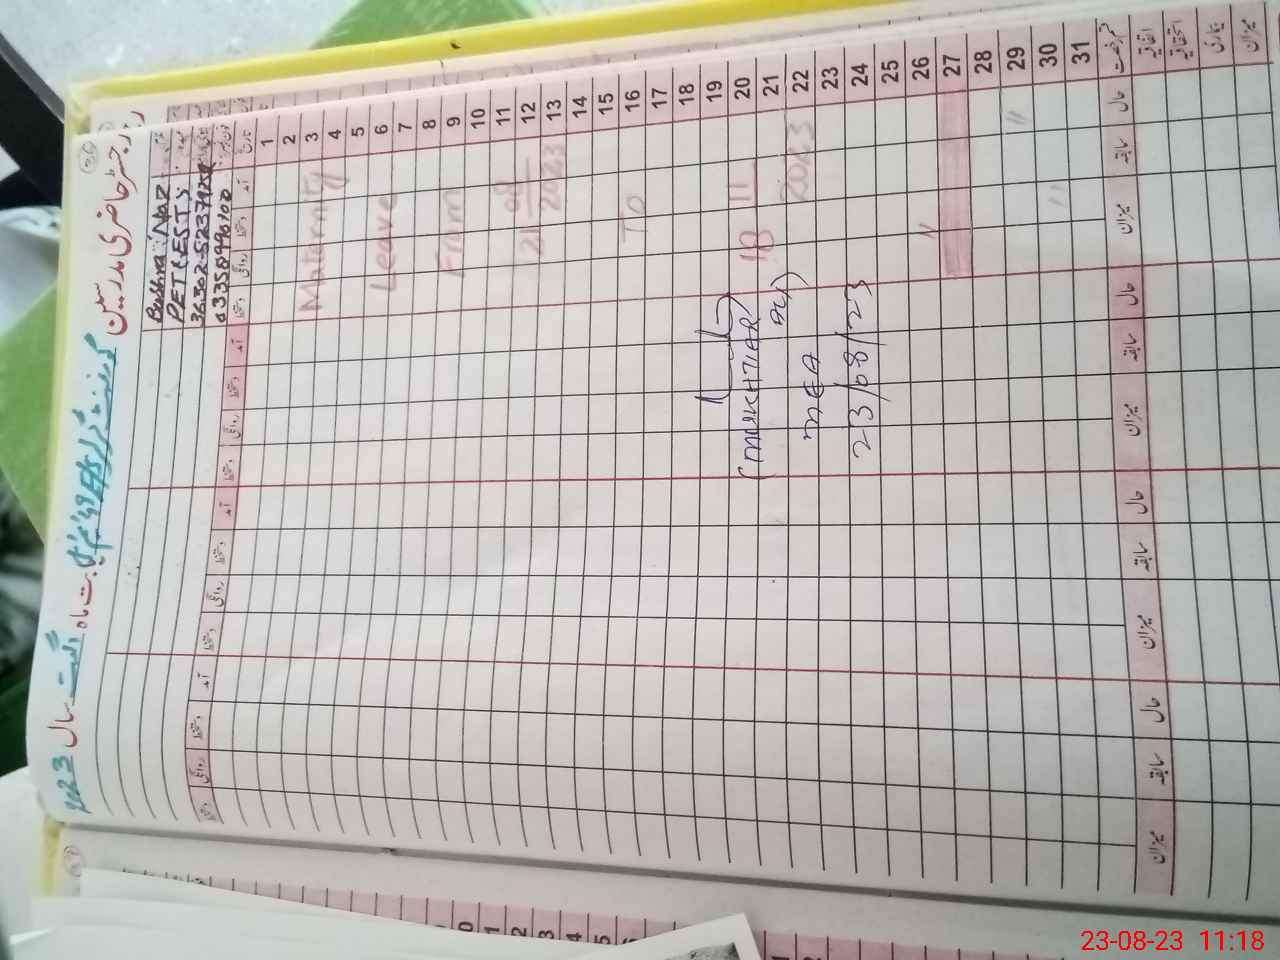 رجسٹر حاضری مدرسین گورنمنٹ گرلز بابت ماہ اگست سال 2023
Bushra Naz
PET (ESTJ
03358996100
تاریخ
آمد دستخط روانگی دستخط آمد دستخط روانگی دستخط آمد دستخط روانگی دستخط آمد دستخط روانگی دستخط
1
2
3
4
5
6
7
8
9
10
11
12
13
14
15
16
17
18
19
20
21
22
23
24
25
26
27
28
29
30
31
Maternity
Leave
From
21 08 2023
To
18 11 2023
(MUKHTIAR
MEA
23/08/23
اتفاقیہ
استحقاقیہ
بیماری
میزان
حال سابقہ میزان حال سابقہ میزان حال سابقہ میزان حال سابقہ میزان
23-08-23 11:18